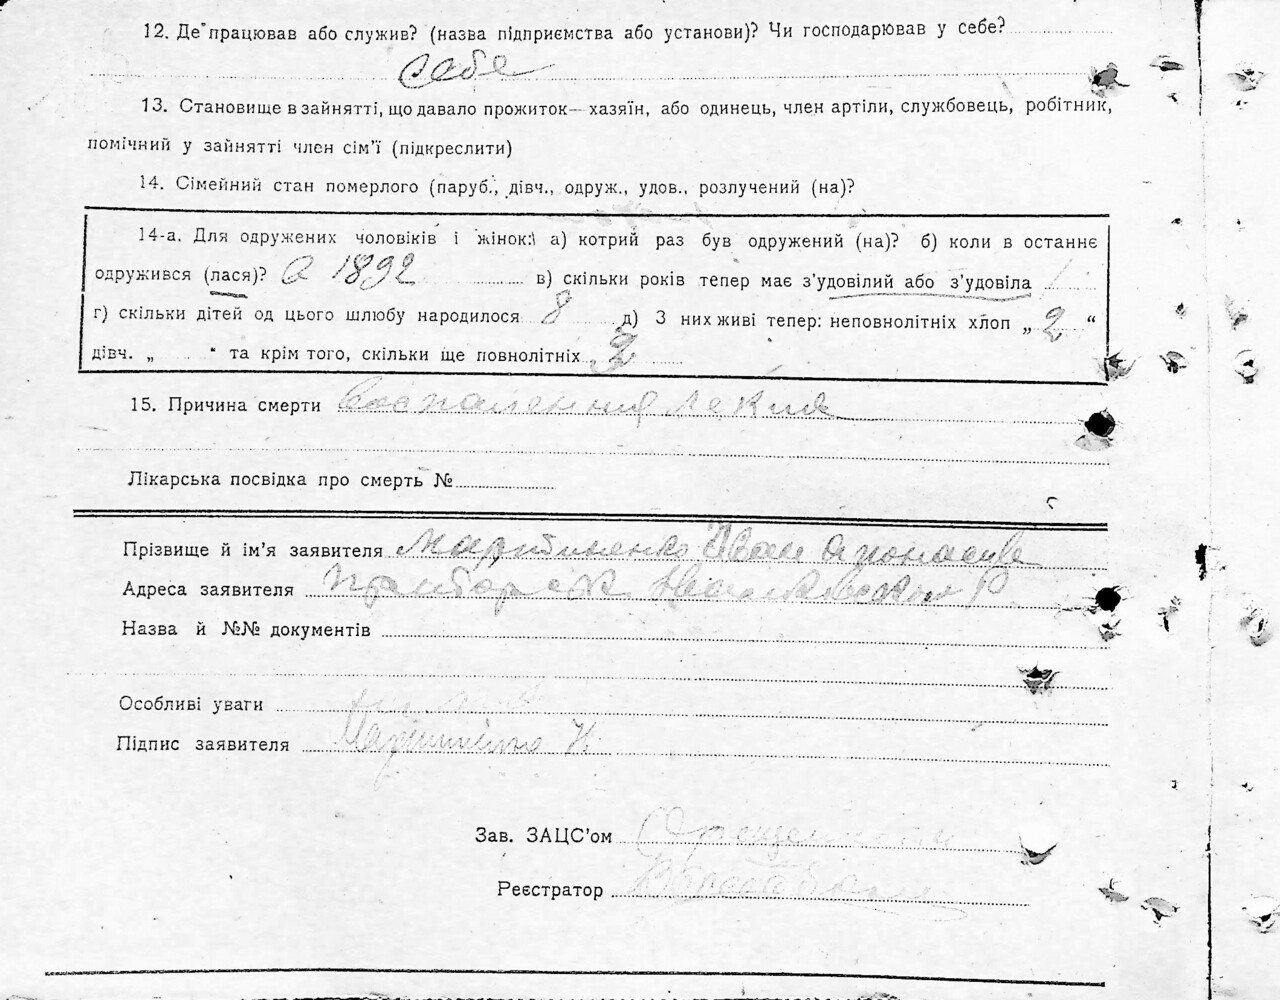 12. Де працював або служив? (назва підприємства або установи)? Чи господарював у себе?
себе
13. Становище в зайнятті, що давало прожиток— хазяїн, або одинець, член артіли, службовець, робітник,
помічний у зайнятті член сім'ї (підкреслити)
14. Сімейний стан померлого (паруб., дівч., одруж., удов., розлучений (на)?
14-а. Для одружених чоловіків і жінок: а) котрий раз був одружений (на)? б) коли в останнє
одружився (лася)? 1892 в) скільки років тепер має з'удовілий або з'удовіла
г) скільки дітей од цього шлюбу народилося 8 д) З них живі тепер: неповнолітніх хлоп „ 2 “
дівч. „ “ та крім того, скільки ще повнолітніх 2
15. Причина смерти
Лікарська посвідка про смерть №
Прізвище й ім'я заявителя Мартиненко Иван
Адреса заявителя
Назва й №№ документів
Особливі уваги
Підпис заявителя
Зав. ЗАЦС'ом
Реєстратор